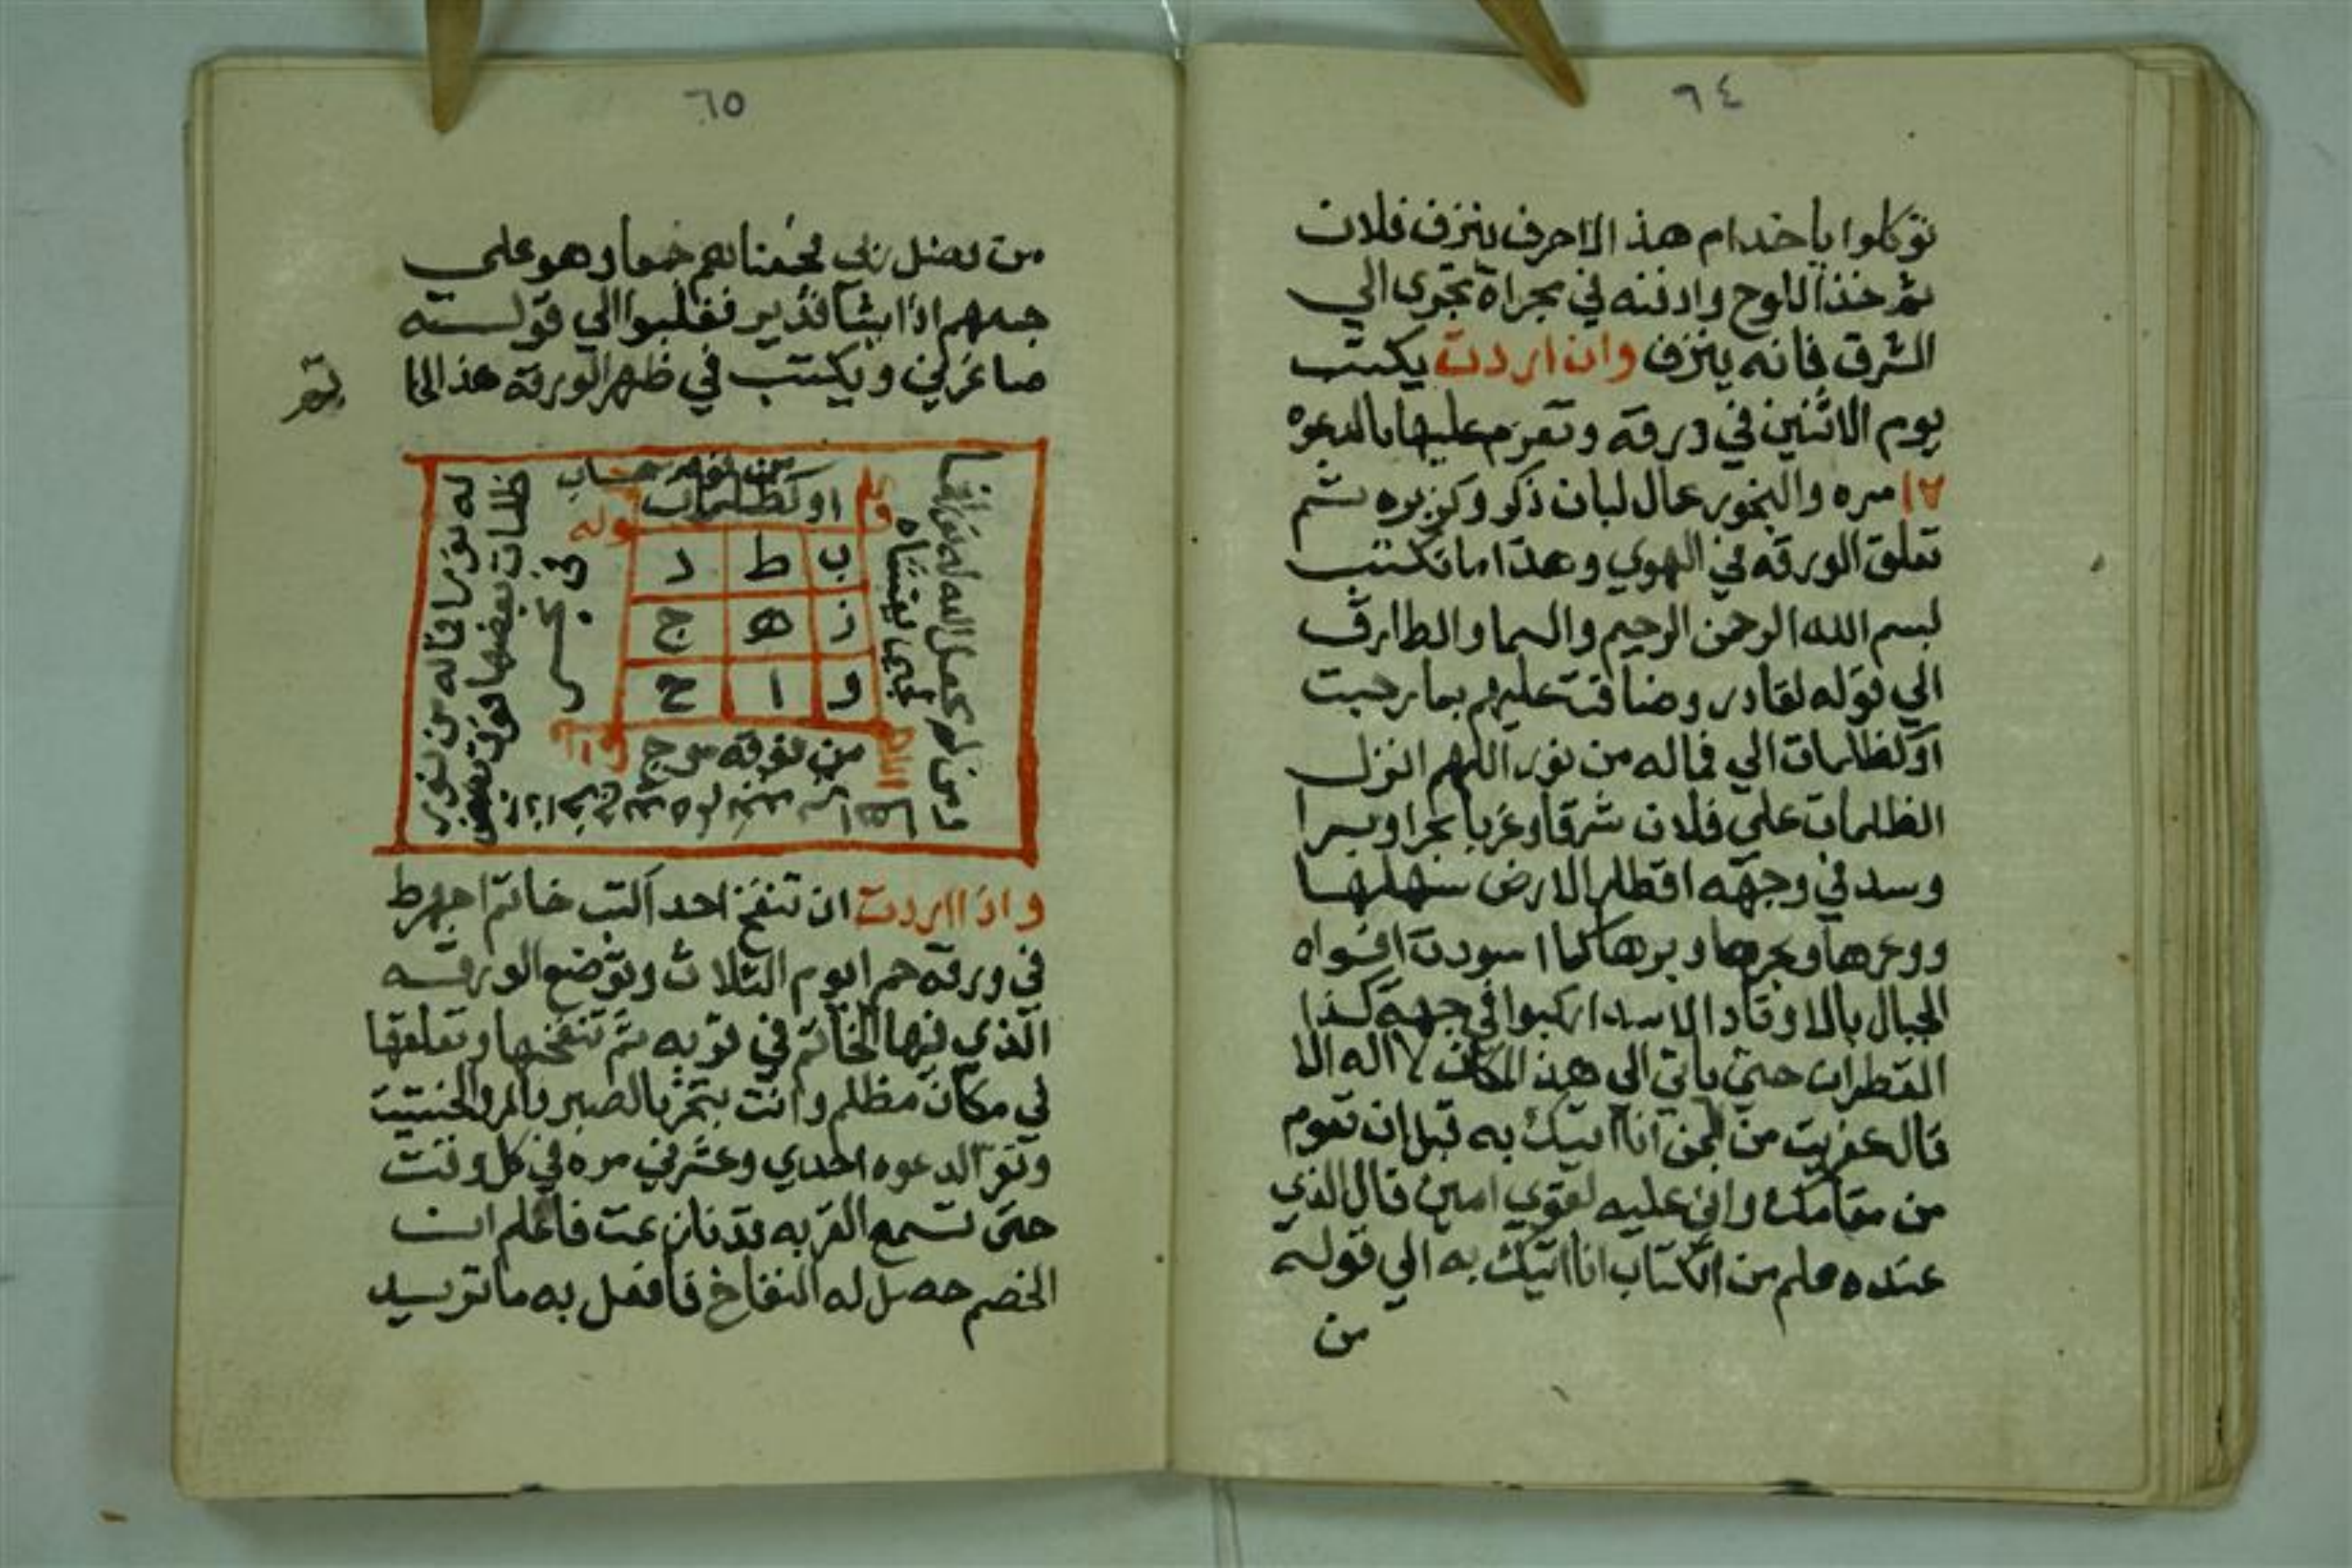 ٦٤
توكلوا ياخدام هذ الاحرف ينزف فلان
ثم خذ اللوح وادفنه في مجراة تجري الي
الشرق فانه ينزف وان اردت يكتب
يوم الاثنين في ورقه وتعزم عليها بالدعوه
مره والبخور عمال لبان ذكر وكزبره ثم
تعلق الورقه في الهوي وهذا ما تكتب
بسم الله الرحمن الرحيم والسما والطارق
الي قوله لقادر وضاقت عليهم بما رحبت
اوكظلمات الي فماله من نور اللهم انزل
الظلمات علي فلان شرقا وغربا بحرا وبرا
وسد في وجهه اقطار الارض سهلها
ووعرها وبحرها وبرها كما اسودت افواه
الجبال بالاوتاد الاسد اركبوا في جهة كذا
القطران حتي ياتي الي هذ المكان لا اله الا
قال عفريت من الجن انا اتيك به قبل ان تقوم
من مقامك واني عليه لقوي امين قال الذي
عنده علم من الكتاب انا اتيك به الي قوله
من
٦٥
من فضل ربي وهو علي
جمعهم اذا يشا قدير فغلبوا الي قوله
صاغرين ويكتب في ظهر الورقه هذ الخا
تم
من فوقه سحاب
اوكظلمات
قوله
ب ط د
ز ه ج
و ا ح
في بحر
يغشاه
من فوقه موج
ظلمات بعضها فوق بعض
له نورا فماله من نور
ومن لم يجعل الله له نورا فما
واذا اردت ان تنفخ احد اكتب خاتم اجهزط
في ورقه حمرا يوم الثلاث وتوضع الورقه
الذي فيها الخاتم في قربه ثم تنفخها وتعلقها
في مكان مظلم وانت بتبخر بالصبر والمر والحنتيت
وتقرا الدعوه احدي وعشرين مره في كل وقت
حتي تسمع القربه قد فان عت فاعلم ان
الخصم حصل له النفاخ فافعل به ما تريد